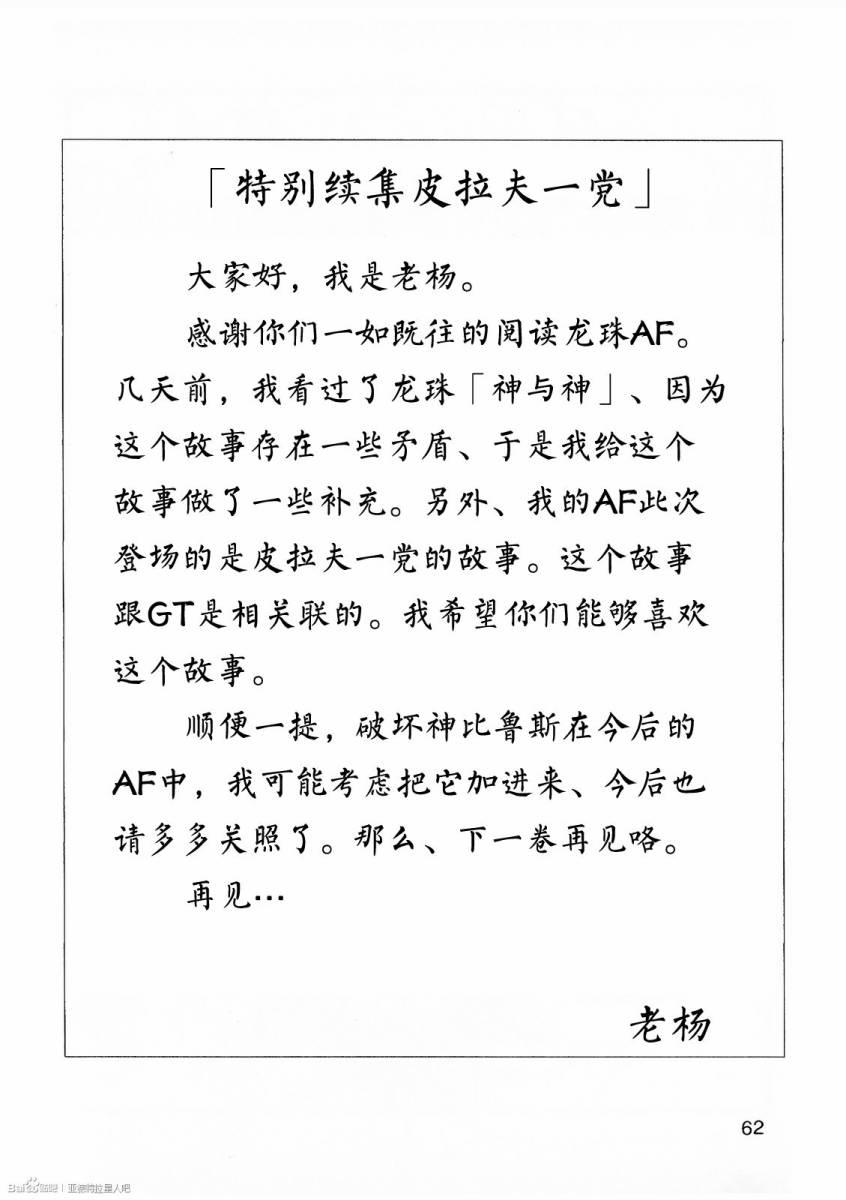 「特别续集皮拉夫一党」
大家好，我是老杨。
感谢你们一如既往的阅读龙珠AF。
几天前，我看过了龙珠「神与神」、因为
这个故事存在一些矛盾、于是我给这个
故事做了一些补充。另外、我的AF此次
登场的是皮拉夫一党的故事。这个故事
跟GT是相关联的。我希望你们能够喜欢
这个故事。
顺便一提，破坏神比鲁斯在今后的
AF中，我可能考虑把它加进来、今后也
请多多关照了。那么、下一卷再见咯。
再见…
老杨
62
Bai贴吧 | 亚德特拉星人吧